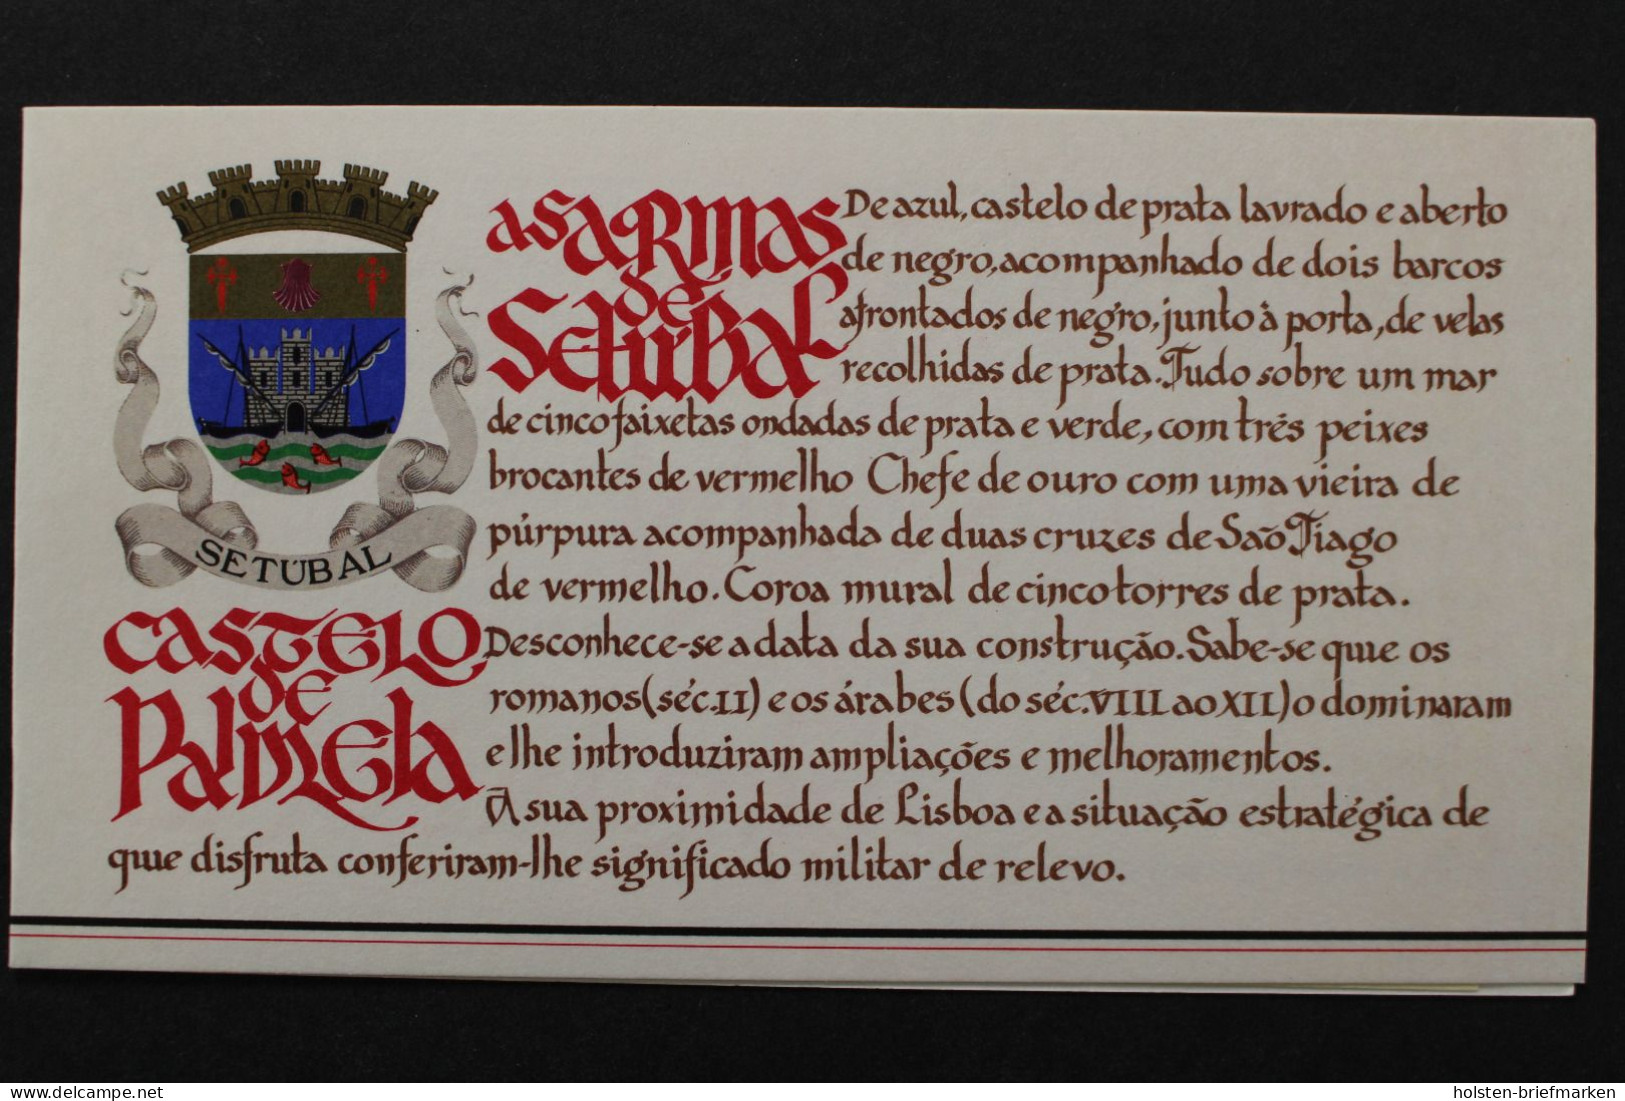 AS ARMAS
DE
SETÚBAL
De azul, castelo de prata lavrado e aberto
de negro, acompanhado de dois barcos
afrontados de negro, junto à porta, de velas
recolhidas de prata. Tudo sobre um mar
de cinco faixetas ondadas de prata e verde, com três peixes
brocantes de vermelho Chefe de ouro com uma vieira de
púrpura acompanhada de duas cruzes de São Tiago
de vermelho. Coroa mural de cinco torres de prata.
SETÚBAL
CASTELO
DE
PALMELA
Desconhece-se a data da sua construção. Sabe-se que os
romanos (séc. II) e os árabes (do séc. VIII ao XII) o dominaram
e lhe introduziram ampliações e melhoramentos.
A sua proximidade de Lisboa e a situação estratégica de
que disfruta conferiram-lhe significado militar de relevo.
© www.delcampe.net
holsten-briefmarken